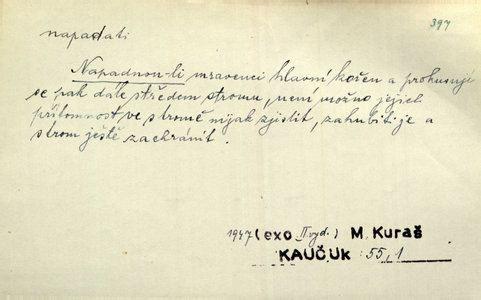 397
napadati
Napadnou-li mravenci hlavní kořen a prokusují
se pak dále středem stromu, není možno jejich
přítomnost ve stromě nijak zjistit, zahubiti je a
strom ještě zachránit.
1947 (exo II vyd.) M. Kuraš
KAUČUK : 55,1